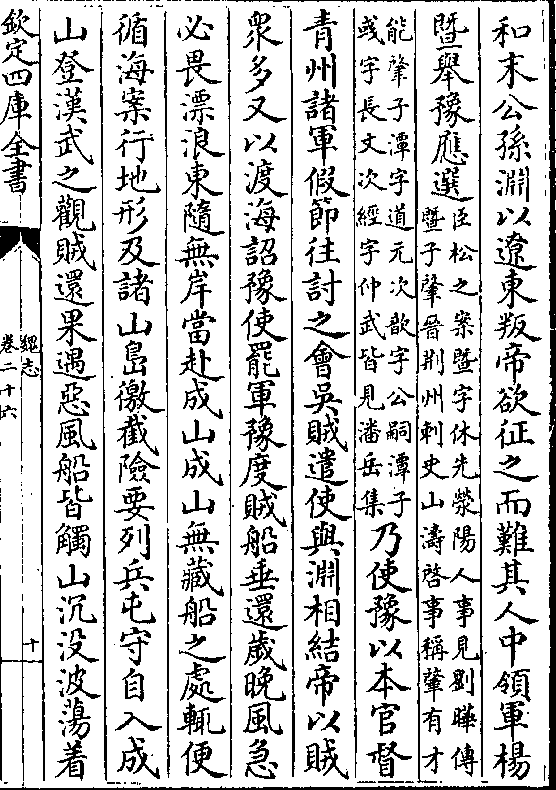 和末公孫淵以遼東叛帝欲征之而難其人中領軍楊
暨舉豫應選臣松之案暨字休先滎陽人事見劉曄傳
暨子肇晉荆州刺史山濤啓事稱肇有才
能肇子潭字道元次歆字公嗣潭子
彧字長文次經字仲武皆見潘岳集乃使豫以本官督
青州諸軍假節往討之會吳賊遣使與淵相結帝以賊
衆多又以渡海詔豫使罷軍豫度賊船垂還歲晚風急
必畏漂浪東隨無岸當赴成山成山無藏船之處輒便
循海案行地形及諸山島徼截險要列兵屯守自入成
山登漢武之觀賊還果遇惡風船皆觸山沉没波蕩着
欽定四庫全書
魏志
卷二十六
十